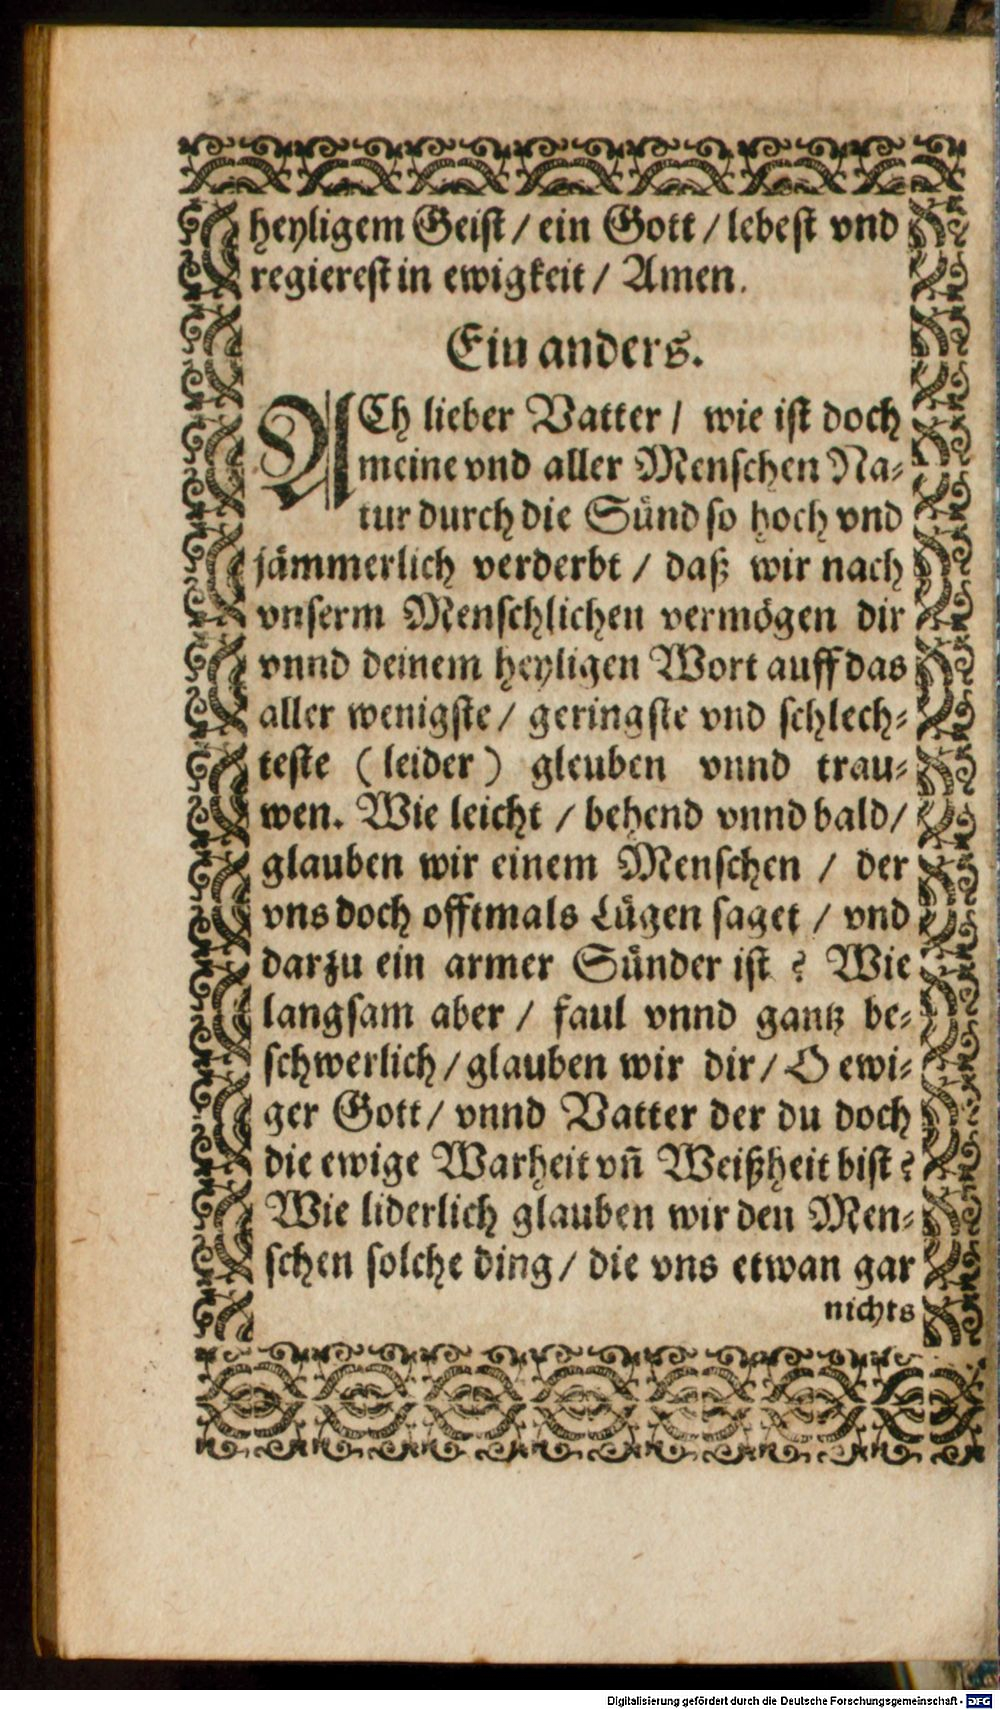 heyligem Geist / ein Gott / lebest vnd
regierest in ewigkeit / Amen.
Ein anders.
ACh lieber Vatter / wie ist doch
meine vnd aller Menschen Na-
tur durch die Sünd so hoch vnd
jämmerlich verderbt / daß wir nach
vnserm Menschlichen vermögen dir
vnnd deinem heyligen Wort auff das
aller wenigste / geringste vnd schlech-
teste ( leider ) gleuben vnnd trau-
wen. Wie leicht / behend vnnd bald /
glauben wir einem Menschen / der
vns doch offtmals Lügen saget / vnd
darzu ein armer Sünder ist ? Wie
langsam aber / faul vnnd gantz be-
schwerlich / glauben wir dir / O ewi-
ger Gott / vnnd Vatter der du doch
die ewige Warheit vñ Weißheit bist ?
Wie liderlich glauben wir den Men-
schen solche ding / die vns etwan gar
nichts
Digitalisierung gefördert durch die Deutsche Forschungsgemeinschaft - DFG